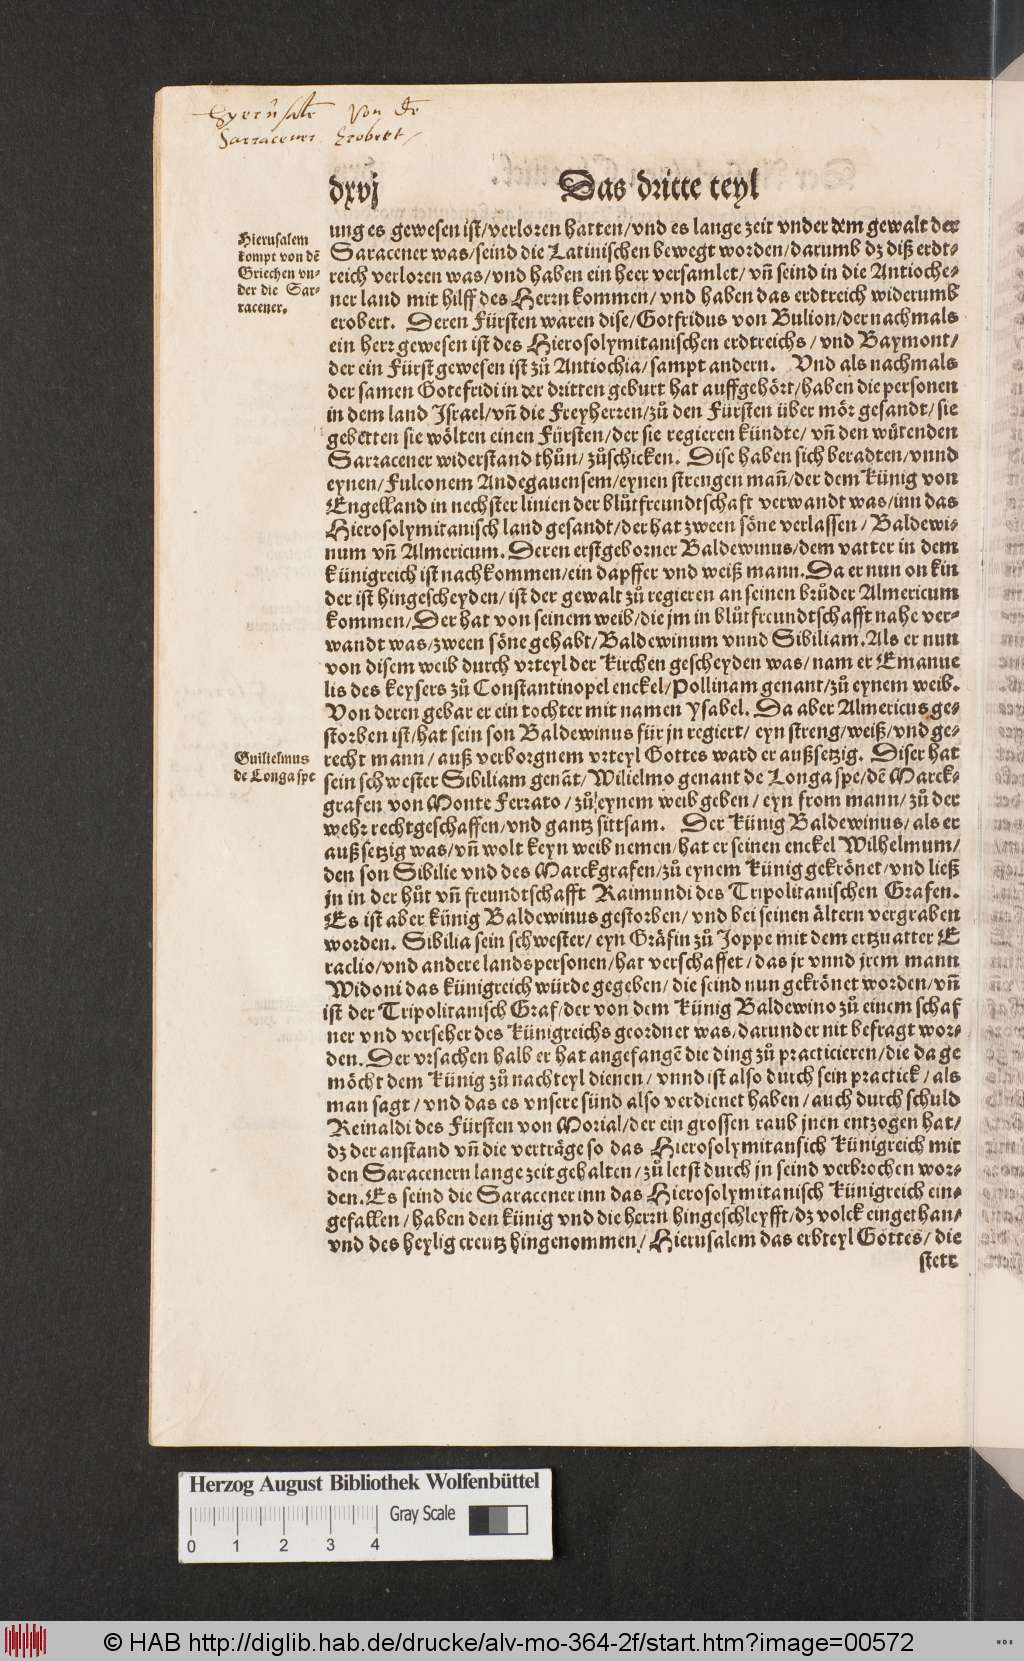 Hyerusalē von dē
Sarracener erobert/
dxvj Das dritte teyl
Hierusalem
kompt von dē
Griechen vn⸗
der die Sar⸗
racener.
ung es gewesen ist/verloren hatten/vnd es lange zeit vnder dem gewalt der
Saracener was/seind die Latinischen bewegt worden/darumb dz diß erdt⸗
reich verloren was/vnd haben ein heer versamlet/vñ seind in die Antioche⸗
ner land mit hilff des Herrn kommen/vnd haben das erdtreich widerumb
erobert. Deren Fürsten waren dise/Gotfridus von Bulion/der nachmals
ein herr gewesen ist des Hierosolymitanischen erdtreichs/vnd Baymont/
der ein Fürst gewesen ist zů Antiochia/sampt andern. Vnd als nachmals
der samen Gotefridi in der dritten geburt hat auffgehört/haben die personen
in dem land Israel/vñ die Freyherren/zů den Fürsten über mör gesandt/sie
gebetten sie wölten einen Fürsten/der sie regieren kündte/vñ den wůtenden
Sarracener widerstand thůn/zůschicken. Dise haben sich beradten/vnnd
eynen/Fulconem Andegauensem/eynen strengen mañ/der dem Künig von
Engelland in nechster linien der blůtfreundtschaft verwandt was/inn das
Hierosolymitanisch land gesandt/der hat zween söne verlassen/Baldewi⸗
num vñ Almericum. Deren erstgeborner Baldewinus/dem vatter in dem
künigreich ist nachkommen/ein dapffer vnd weiß mann. Da er nun on kin
der ist hingescheyden/ist der gewalt zů regieren an seinen brůder Almericum
kommen/Der hat von seinem weib/die jm in blůtfreundtschafft nahe ver⸗
wandt was/zween söne gehabt/Baldewinum vnnd Sibiliam. Als er nun
von disem weib durch vrteyl der Kirchen gescheyden was/nam er Emanue
lis des keysers zů Constantinopel enckel/Pollinam genant/zů eynem weib.
Von deren gebar er ein tochter mit namen Ysabel. Da aber Almericus ge⸗
storben ist/hat sein son Baldewinus für jn regiert/eyn streng/weiß/vnd ge⸗
Guilielmus
de Longaspe
recht mann/auß verborgnem vrteyl Gottes ward er außsetzig. Diser hat
sein schwester Sibiliam genāt/Wilielmo genant de Longa spe/dē Marck⸗
grafen von Monte Ferrato/zů eynem weib geben/eyn from mann/zů der
wehr rechtgeschaffen/vnd gantz sittsam. Der Künig Baldewinus/als er
außsetzig was/vñ wolt keyn weib nemen/hat er seinen enckel Wilhelmum/
den son Sibilie vnd des Marckgrafen/zů eynem Künig gekrönet/vnd ließ
jn in der hůt vñ freundtschafft Raimundi des Tripolitanischen Grafen.
Es ist aber künig Baldewinus gestorben/vnd bei seinen ältern vergraben
worden. Sibilia sein schwester/eyn Gräfin zů Joppe mit dem ertzuatter E
raclio/vnd andere landspersonen/hat verschaffet/das jr vnnd jrem mann
Widoni das künigreich würde gegeben/die seind nun gekrönet worden/vñ
ist der Tripolitanisch Graf/der von dem Künig Baldewino zů einem schaf
ner vnd verseher des Künigreichs geordnet was/darunder nit befragt wor⸗
den. Der vrsachen halb er hat angefangē die ding zů practicieren/die da ge
möcht dem Künig zů nachteyl dienen/vnnd ist also durch sein practick/als
man sagt/vnd das es vnsere sünd also verdienet haben/auch durch schuld
Reinaldi des Fürsten von Morial/der ein grossen raub jnen entzogen hat/
dz der anstand vñ die verträge so das Hierosolymitansich Künigreich mit
den Saracenern lange zeit gehalten/zů letst durch jn seind verbrochen wor⸗
den. Es seind die Saracener inn das Hierosolymitanisch Künigreich ein⸗
gefallen/haben den künig vnd die herrn hingeschleyfft/dz volck eingethan/
vnd des heylig creutz hingenommen/Hierusalem das erbteyl Gottes/die
stett
Herzog August Bibliothek Wolfenbüttel
Gray Scale
0 1 2 3 4
© HAB http://diglib.hab.de/drucke/alv-mo-364-2f/start.htm?image=00572